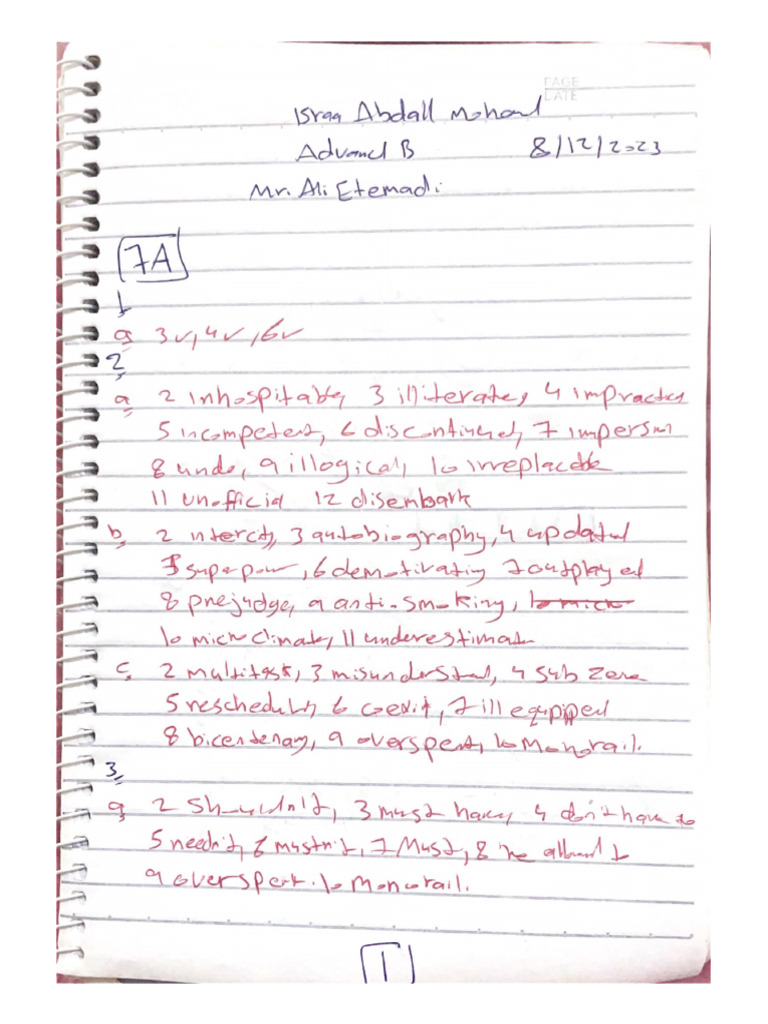 PAGE
DATE
Israa Abdall Mohamd
Advancd B 8/12/2023
Mr. Ali Etemadi
7A
1
a 3✓, 4✓, 6✓
2
a 2 inhospitable, 3 illiterate, 4 impractical
5 incompetent, 6 discontinued, 7 impersonal
8 undo, 9 illogical, 10 irreplaceable
11 unofficial 12 disembark
b 2 intercity, 3 autobiography, 4 updated
5 superpower, 6 demotivating 7 outplayed
8 prejudge, 9 anti-smoking,
10 microclimate, 11 underestimate
c 2 multitask, 3 misunderstood, 4 sub zero
5 rescheduled, 6 coexist, 7 ill equipped
8 bicentenary, 9 overspent, 10 Monorail.
3
a 2 shouldn't, 3 must have, 4 don't have to
5 needn't, 6 mustn't, 7 Must, 8 're allowed to
9 overspent. 10 Monorail.
1